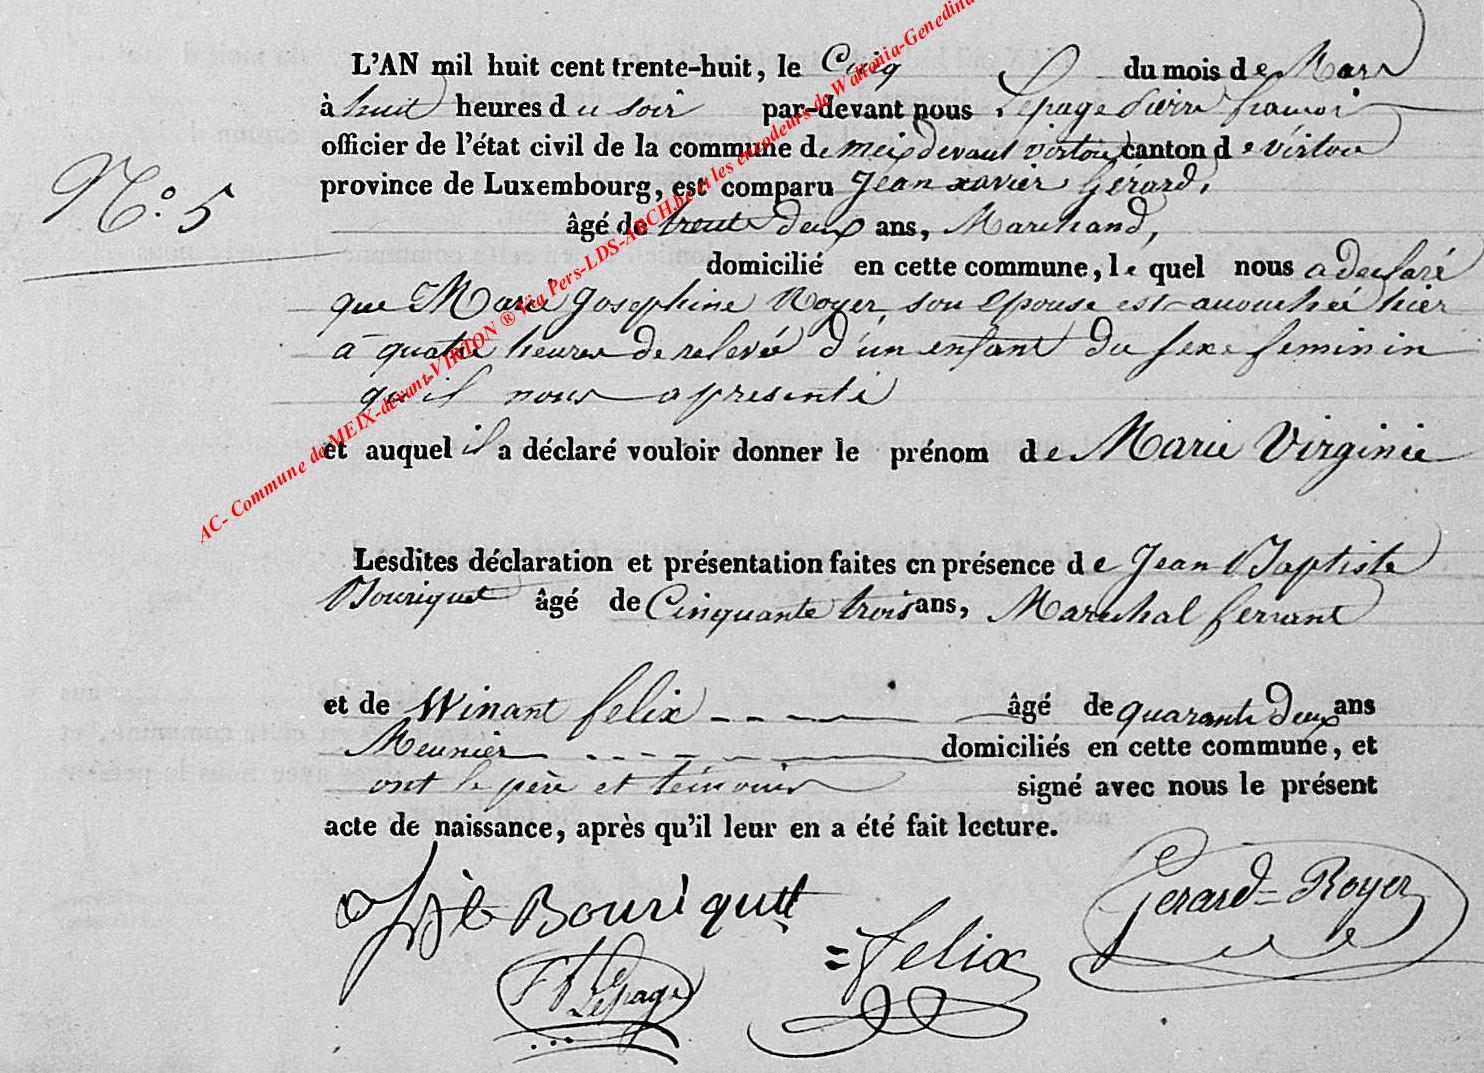 L'AN mil huit cent trente-huit, le Cinq du mois de Mars
à huit heures du soir par-devant nous Lepage Pierre françois
officier de l'état civil de la commune de meix devant virton canton de virton
N.° 5
province de Luxembourg, est comparu Jean xavier Gérard,
âgé de trente deux ans, Marchand,
domicilié en cette commune, le quel nous a déclaré
que Marie Josephine Royer, son épouse est accouchée hier
à quatre heures de relevée d'un enfant du sexe feminin
qu'il nous a presenté
et auquel il a déclaré vouloir donner le prénom de Marie Virginie
Lesdites déclaration et présentation faites en présence de Jean Baptiste
Bouriquet âgé de Cinquante trois ans, Marechal ferrant
et de Winant felix âgé de quarante deux ans
Meunier domiciliés en cette commune, et
ont le père et témoins signé avec nous le présent
acte de naissance, après qu'il leur en a été fait lecture.
JB Bouriquet
Gerard=Royer
=felix
PF Lepage
AC- Commune de MEIX-devant-VIRTON ® Via Pers-LDS-ARCH.be et les encodeurs de Waltonia-Genedina